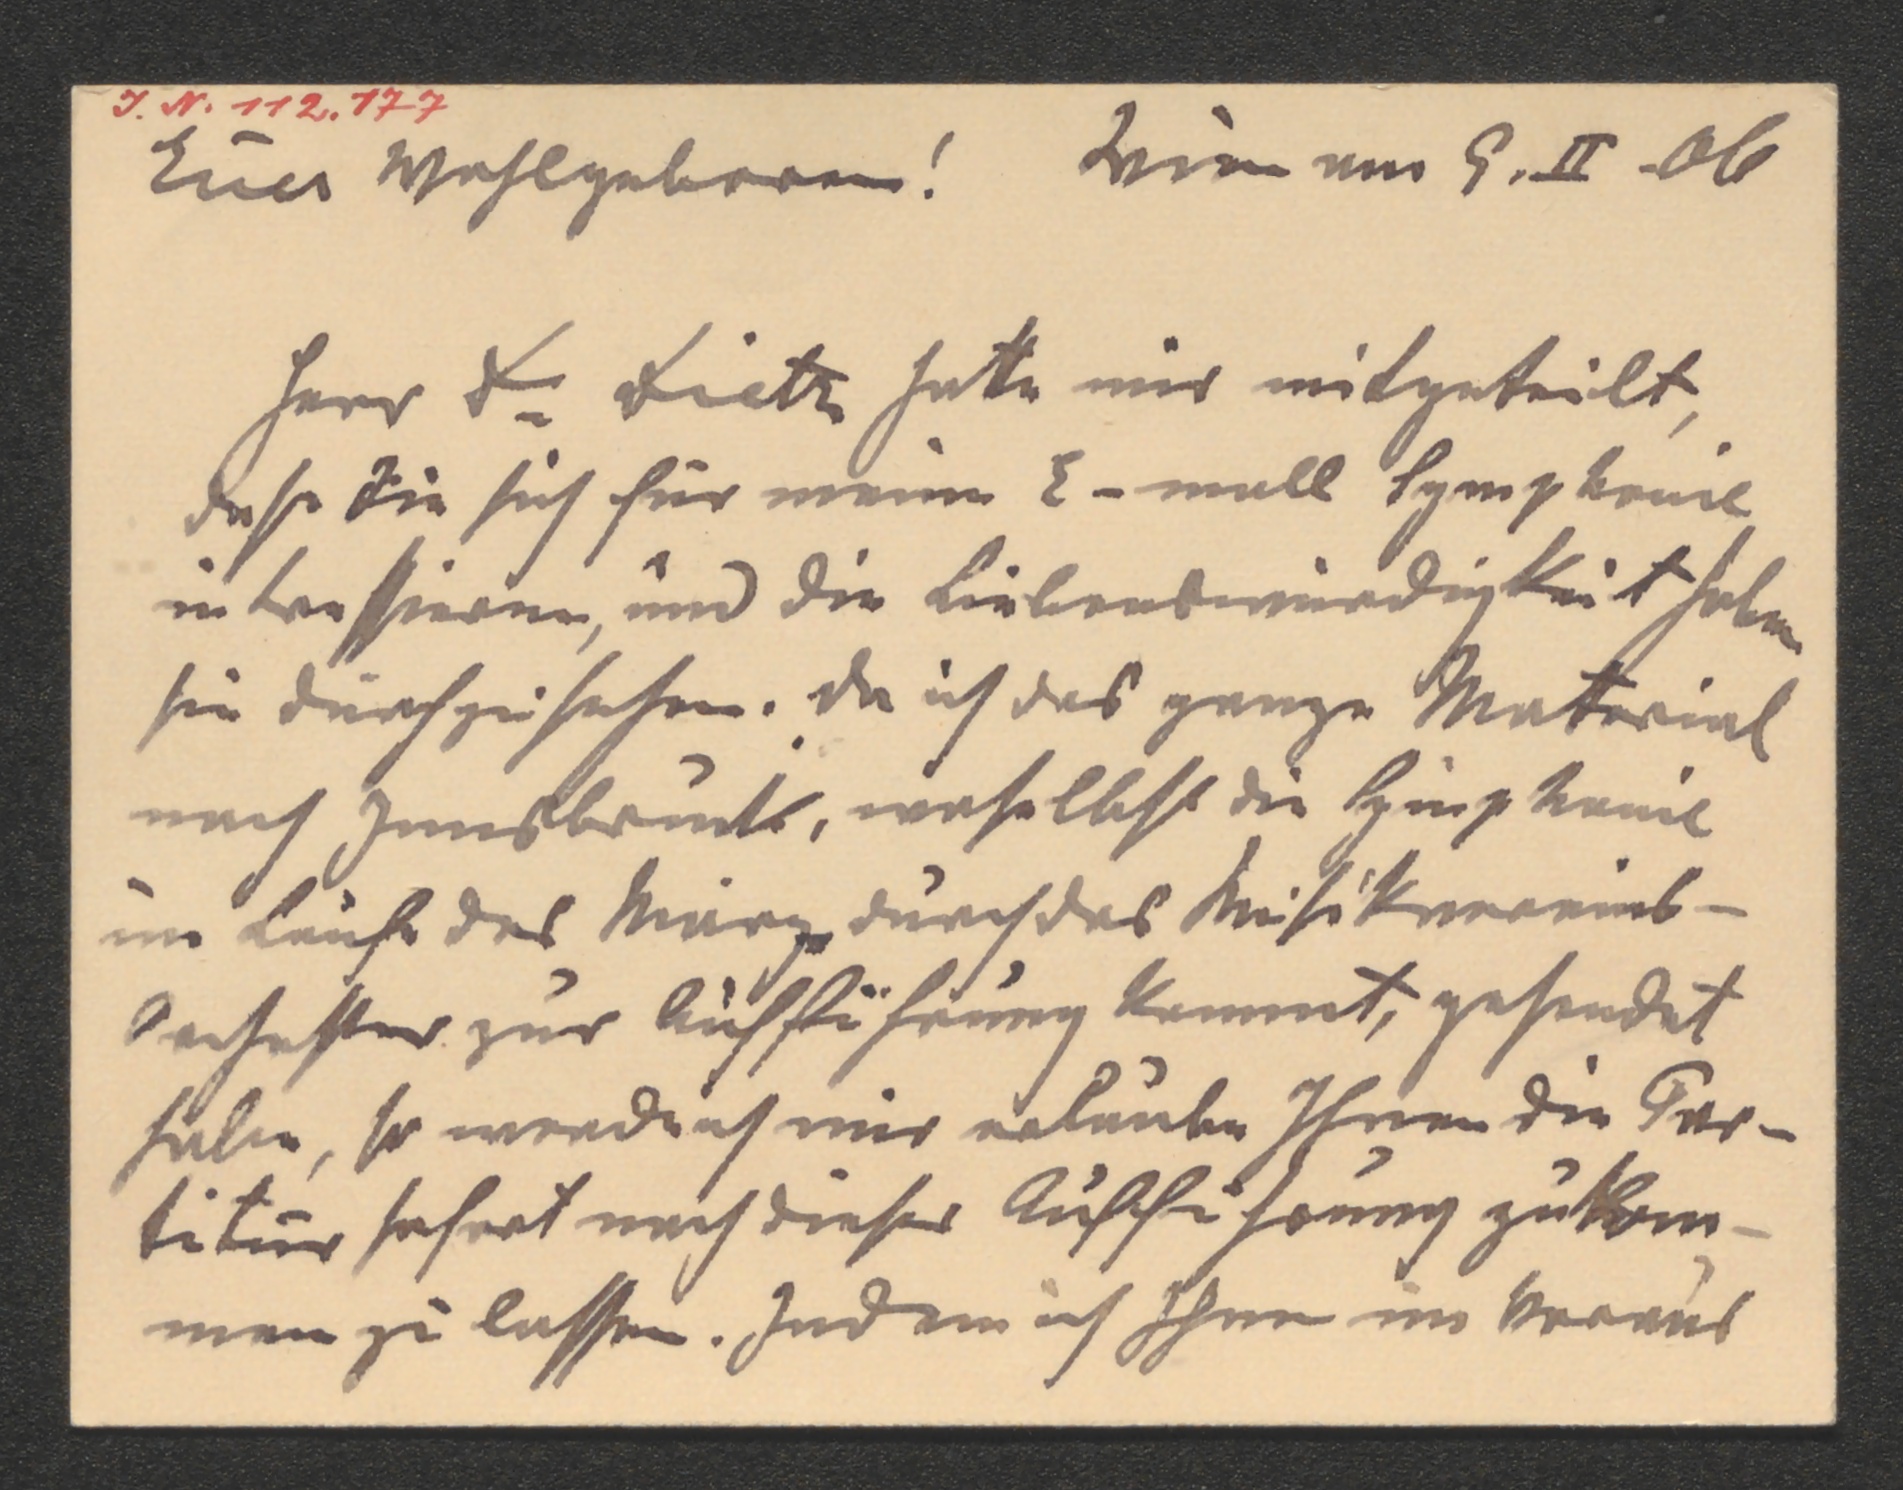 I. N. 112.177
Euer Wohlgeboren! Wien am 9. II 06
Herr Dr Dietz hatte mir mitgeteilt,
dass Sie sich für meine E-moll Symphonie
intressieren, und die Liebenswürdigkeit haben
sie durchzusehen. Da ich das ganze Material
nach Innsbruck, woselbst die Symphonie
im Laufe des März durch das Musikvereins-
Orchester zur Aufführung kommt, gesendet
habe, so werde ich mir erlauben Ihnen die Par-
titur sofort nach dieser Aufführung zukom-
men zu lassen. Indem ich Ihnen im Voraus